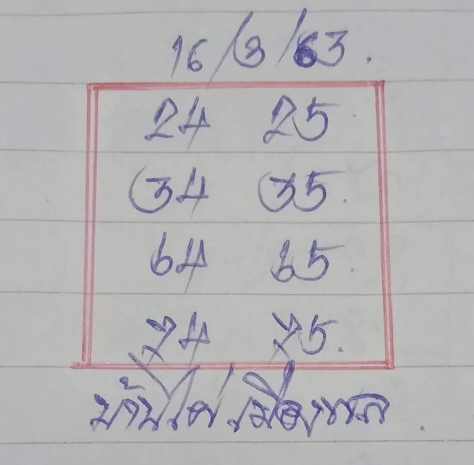 16/3/63.
24 25
34 35.
64 65.
74 75.
บ้านไผ่เมืองพล